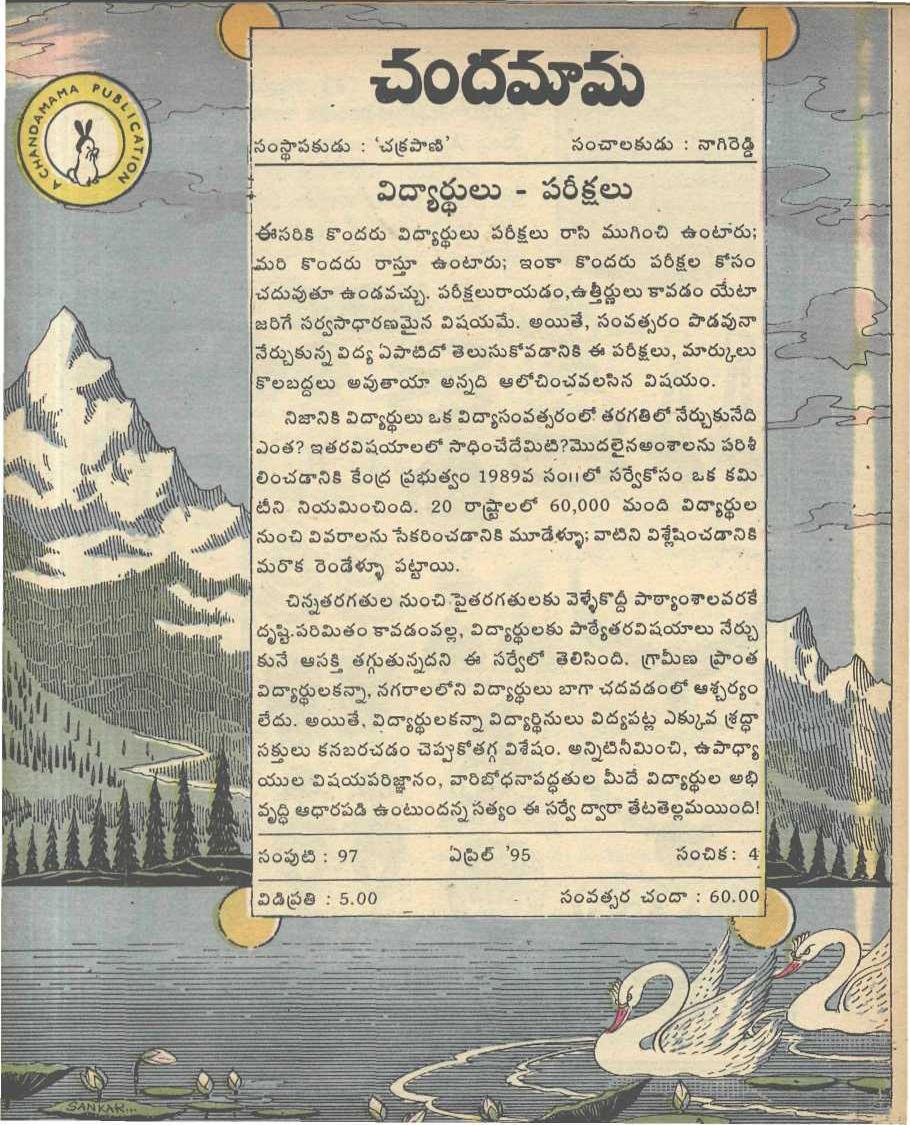 చందమామ
A CHANDAMAMA PUBLICATION
సంస్థాపకుడు : 'చక్రపాణి' సంచాలకుడు : నాగిరెడ్డి
విద్యార్థులు - పరీక్షలు
ఈసరికి కొందరు విద్యార్థులు పరీక్షలు రాసి ముగించి ఉంటారు;
మరి కొందరు రాస్తూ ఉంటారు; ఇంకా కొందరు పరీక్షల కోసం
చదువుతూ ఉండవచ్చు. పరీక్షలురాయడం,ఉత్తీర్ణులు కావడం యేటా
జరిగే సర్వసాధారణమైన విషయమే. అయితే, సంవత్సరం పొడవునా
నేర్చుకున్న విద్య ఏపాటిదో తెలుసుకోవడానికి ఈ పరీక్షలు, మార్కులు
కొలబద్దలు అవుతాయా అన్నది ఆలోచించవలసిన విషయం.
నిజానికి విద్యార్థులు ఒక విద్యాసంవత్సరంలో తరగతిలో నేర్చుకునేది
ఎంత? ఇతరవిషయాలలో సాధించేదేమిటి?మొదలైనఅంశాలను పరిశీ
లించడానికి కేంద్ర ప్రభుత్వం 1989వ సం॥లో సర్వేకోసం ఒక కమి
టీని నియమించింది. 20 రాష్ట్రాలలో 60,000 మంది విద్యార్థుల
నుంచి వివరాలను సేకరించడానికి మూడేళ్ళూ; వాటిని విశ్లేషించడానికి
మరొక రెండేళ్ళూ పట్టాయి.
చిన్నతరగతుల నుంచి పైతరగతులకు వెళ్ళేకొద్దీ పాఠ్యాంశాలవరకే
దృష్టి పరిమితం కావడంవల్ల, విద్యార్థులకు పాఠ్యేతరవిషయాలు నేర్చు
కునే ఆసక్తి తగ్గుతున్నదని ఈ సర్వేలో తెలిసింది. గ్రామీణ ప్రాంత
విద్యార్థులకన్నా, నగరాలలోని విద్యార్థులు బాగా చదవడంలో ఆశ్చర్యం
లేదు. అయితే, విద్యార్థులకన్నా విద్యార్థినులు విద్యపట్ల ఎక్కువ శ్రద్ధా
సక్తులు కనబరచడం చెప్పుకోతగ్గ విశేషం. అన్నిటినీమించి, ఉపాధ్యా
యుల విషయపరిజ్ఞానం, వారిబోధనాపద్ధతుల మీదే విద్యార్థుల అభి
వృద్ధి ఆధారపడి ఉంటుందన్న సత్యం ఈ సర్వే ద్వారా తేటతెల్లమయింది!
సంపుటి : 97 ఏప్రిల్ '95 సంచిక: 4
విడిప్రతి : 5.00 సంవత్సర చందా : 60.00
SANKAR...